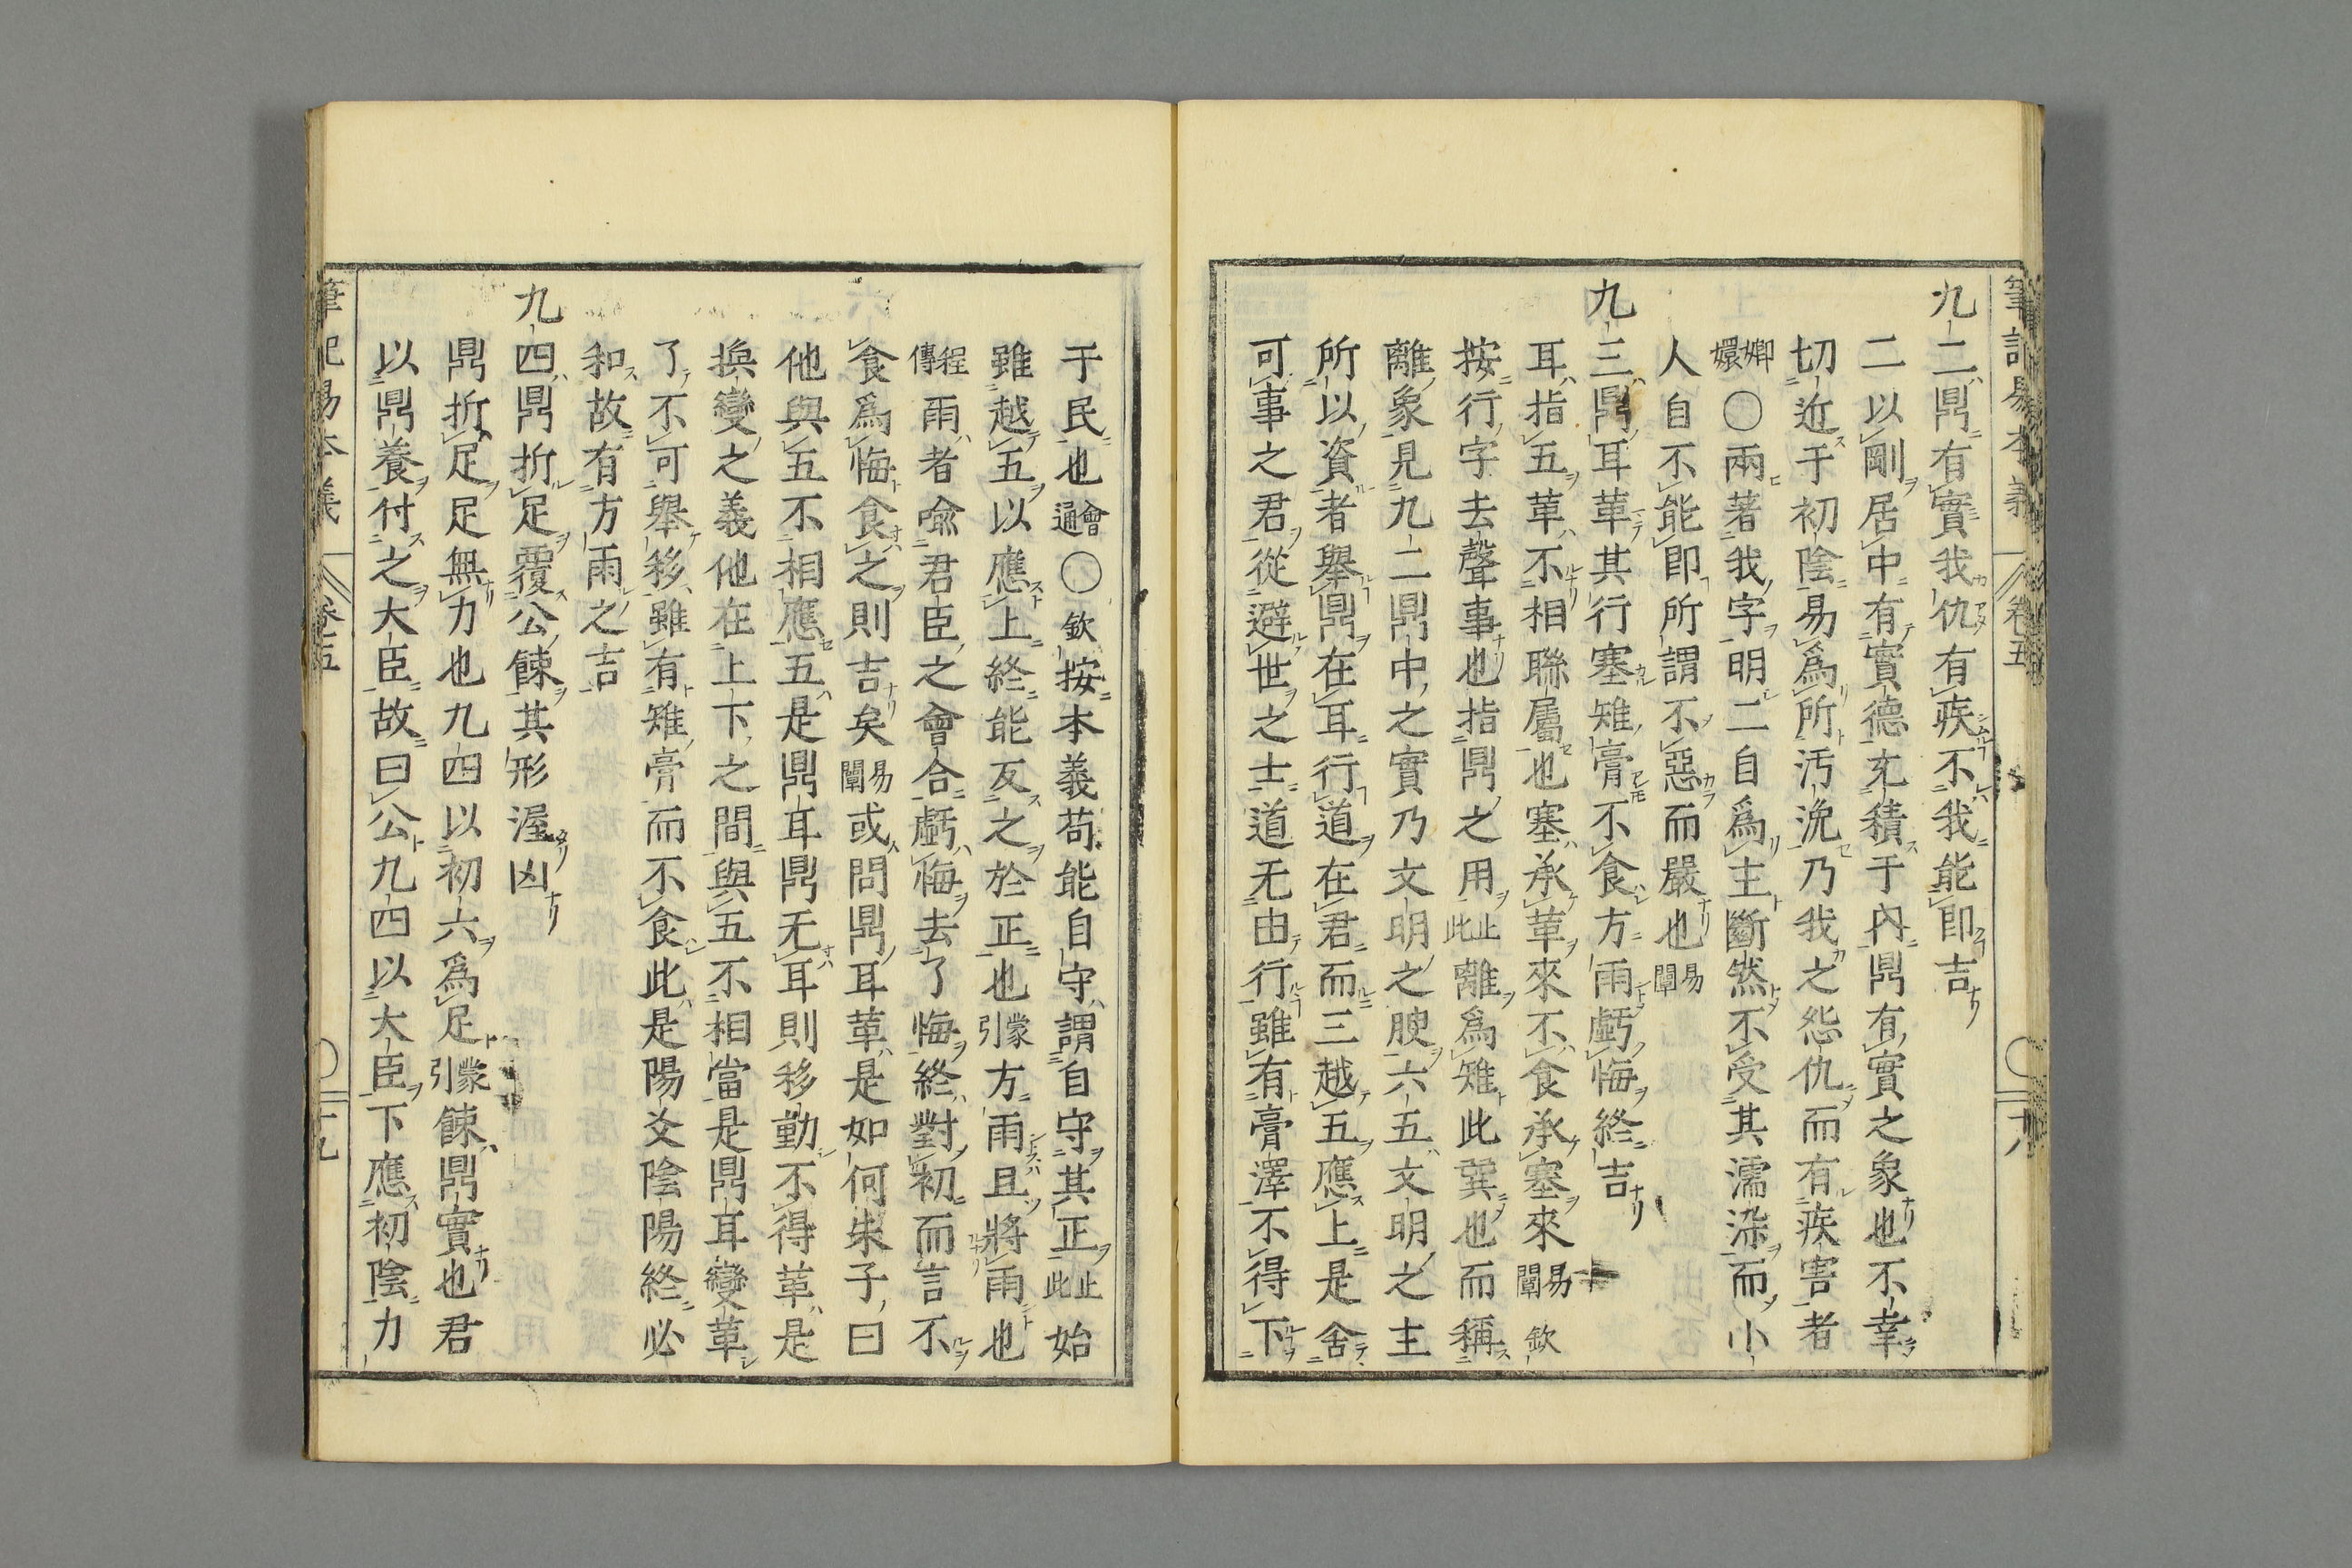 九二鼎有實我仇有疾不我能即吉
二以剛居中有實德充積于内鼎有實之象也不幸
切近于初陰易為所汚浼乃我之怨仇而有疾害者
嫏嬛〇兩著我字明二自為主斷然不受其濡染而小
人自不能即所謂不惡而嚴也易闡
九三鼎耳革其行塞雉膏不食方雨虧悔終吉
耳指五革不相聯屬也塞承革來不食承塞來易闡欽
按行字去聲事也指鼎之用止此離為雉此巽也而稱
離象見九二鼎中之實乃文明之腴六五文明之主
所以資者舉鼎在耳行道在君而三越五應上是舍
可事之君從避世之士道无由行雖有膏澤不得下
筆記易本義 卷五 〇 十八
于民也會通〇欽按本義苟能自守謂自守其正止此始
雖越五以應上終能反之於正也蒙引方雨且將雨也
程傳雨者喩君臣之會合虧悔去了悔終對初而言不
食為悔食之則吉矣易闡或問鼎耳革是如何朱子曰
他與五不相應五是鼎耳鼎无耳則移動不得革是
換變之義他在上下之間與五不相當是鼎耳變革
了不可舉移雖有雉膏而不食此是陽爻陰陽終必
和故有方雨之吉
九四鼎折足覆公餗其形渥凶
鼎折足足無力也九四以初六為足蒙引餗鼎實也君
以鼎養付之大臣故曰公九四以大臣下應初陰力
筆記易本義 卷五 〇 十九